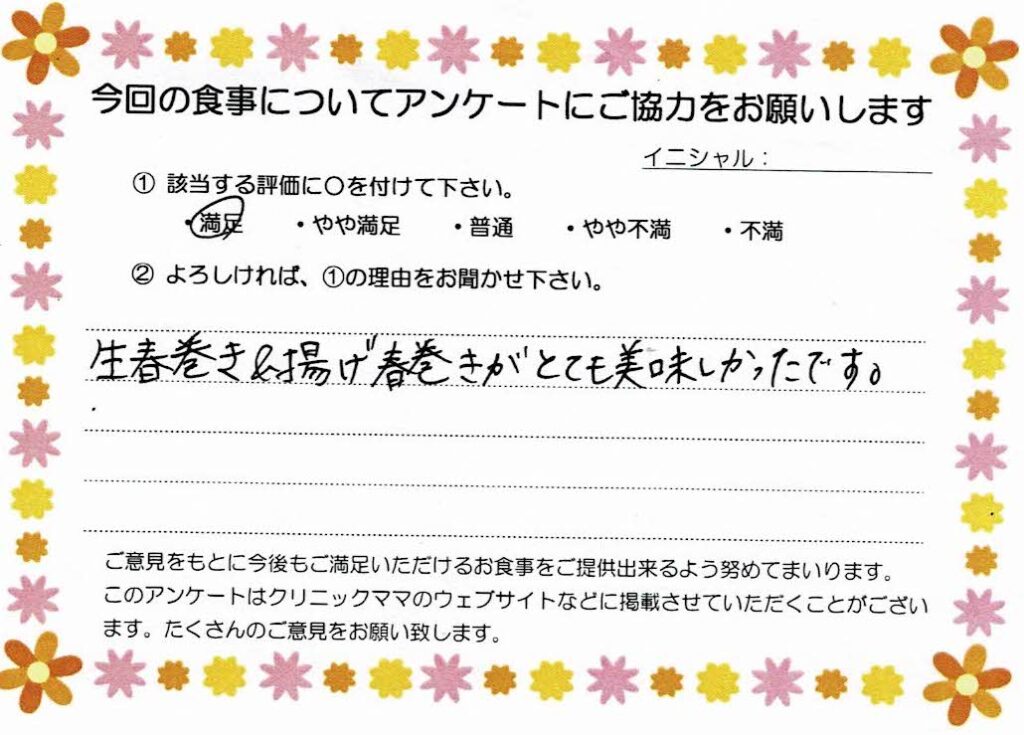 今回の食事についてアンケートにご協力をお願いします
イニシャル：
① 該当する評価に〇を付けて下さい。
・満足 ・やや満足 ・普通 ・やや不満 ・不満
② よろしければ、①の理由をお聞かせ下さい。
生春巻き&揚げ春巻きがとても美味しかったです。
ご意見をもとに今後もご満足いただけるお食事をご提供出来るよう努めてまいります。
このアンケートはクリニックママのウェブサイトなどに掲載させていただくことがござい
ます。たくさんのご意見をお願い致します。